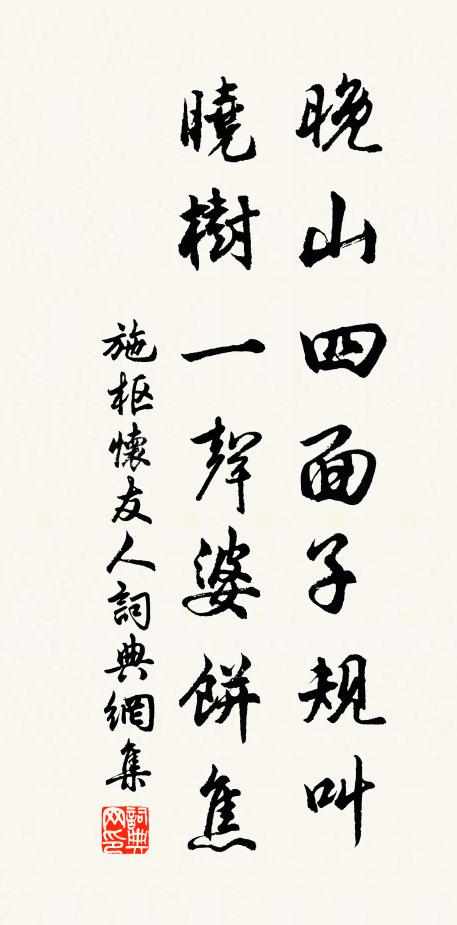 晚山四面子規叫
曉樹一聲婆餅焦
施枢懷友人詞典網集
詞典网印